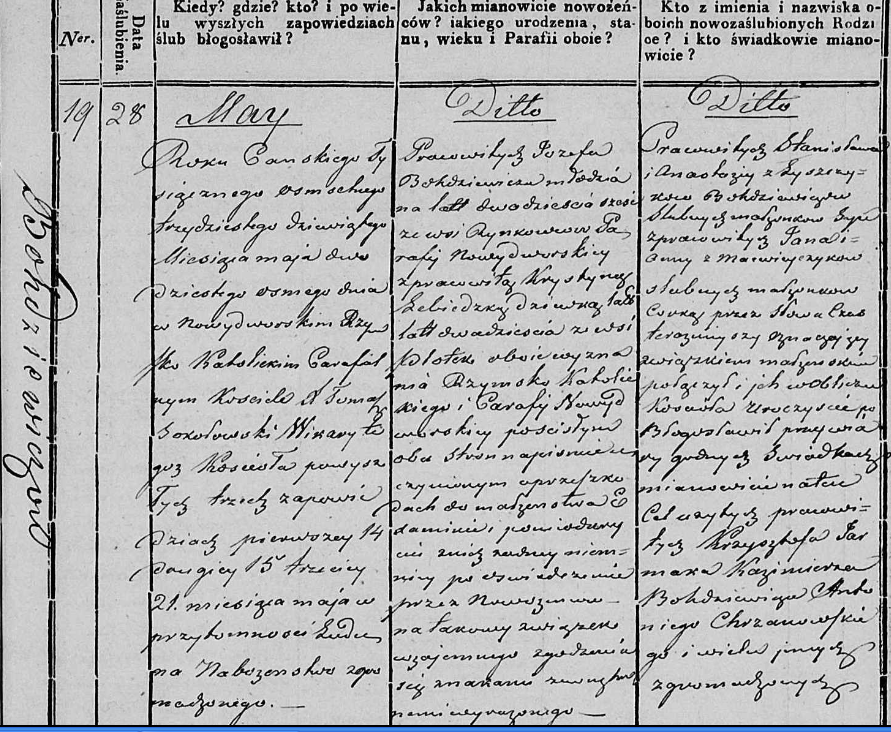 Ner.
Data zaślubienia.
Kiedy? gdzie? kto? i po wie-
lu wyszłych zapowiedziach
ślub błogosławił?
Jakich mianowicie nowożeń-
ców? iakiego urodzenia, sta-
nu, wieku i Parafii oboie?
Kto z imienia i nazwiska o-
boich nowozaślubionych Rodzi
ce? i kto świadkowie miano-
wicie?
Bohdziewiczow
19
28
May
Roku Panskiego Ty
siącznego osmsetnego
trzydziestego dziewiątego
Miesiąca maja dwu
dziestego osmego dnia
w Nowydworskim Rzym
sko Katolickim Parafial
nym Kosciele X Tomasz
Sokołowski Wikary te
goż Koscioła po wysz
łych trzech zapowie
dziach pierwszey 14
drugiey 15 trzeciey
21 miesiąca maja w
przytomnosci Ludu
na Nabozenstwo zgro
madzonego. —
Ditto
Pracowitych Jozefa
Bohdziewicza młodzia
na latt dwadziescia szesc
ze wsi Rynkowcow Pa
rafij Nowydworskiey
z pracowitą Krystyną
Lebiedzką dziewką
latt dwadziescia z wsi
oboie wyzna
nia Rzymsko Katolic
kiego i Parafij Nowyd
worskiey po scisłym
obu stron na pismie u
czynionym o przeszko
dach do małzenstwa E
xaminie i po niedowy
ciu zney niem=
niey po oswiadczeniu
przez Nowozencow
na takowy związek
wzajemnego zgodzenia
się znakami zewnętrz
nemi wyrazonego —
Ditto
Pracowitych Stanisława
i Anastazij z Łyszczy=
kow Bohdziewiczow
slubnych małzonkow Syna
z pracowitych Jana i=
Anny z Macwieyczykow
slubnych małzonkow
Corką przez słowa Czas
teraznieyszy oznaczające
związkiem małzenskim
połączył i jch w obliczu
Koscioła uroczyscie po
Błogosławił przy wia
ry godnych Swiadkach
mianowicie na ten
Cel uzytych pracowi=
tych Krzysztofa Jar
maka Kazimierza
Bohdziewicza Anto
niego Chrzanowskie
go i wielu jnnych
zgromadzonych